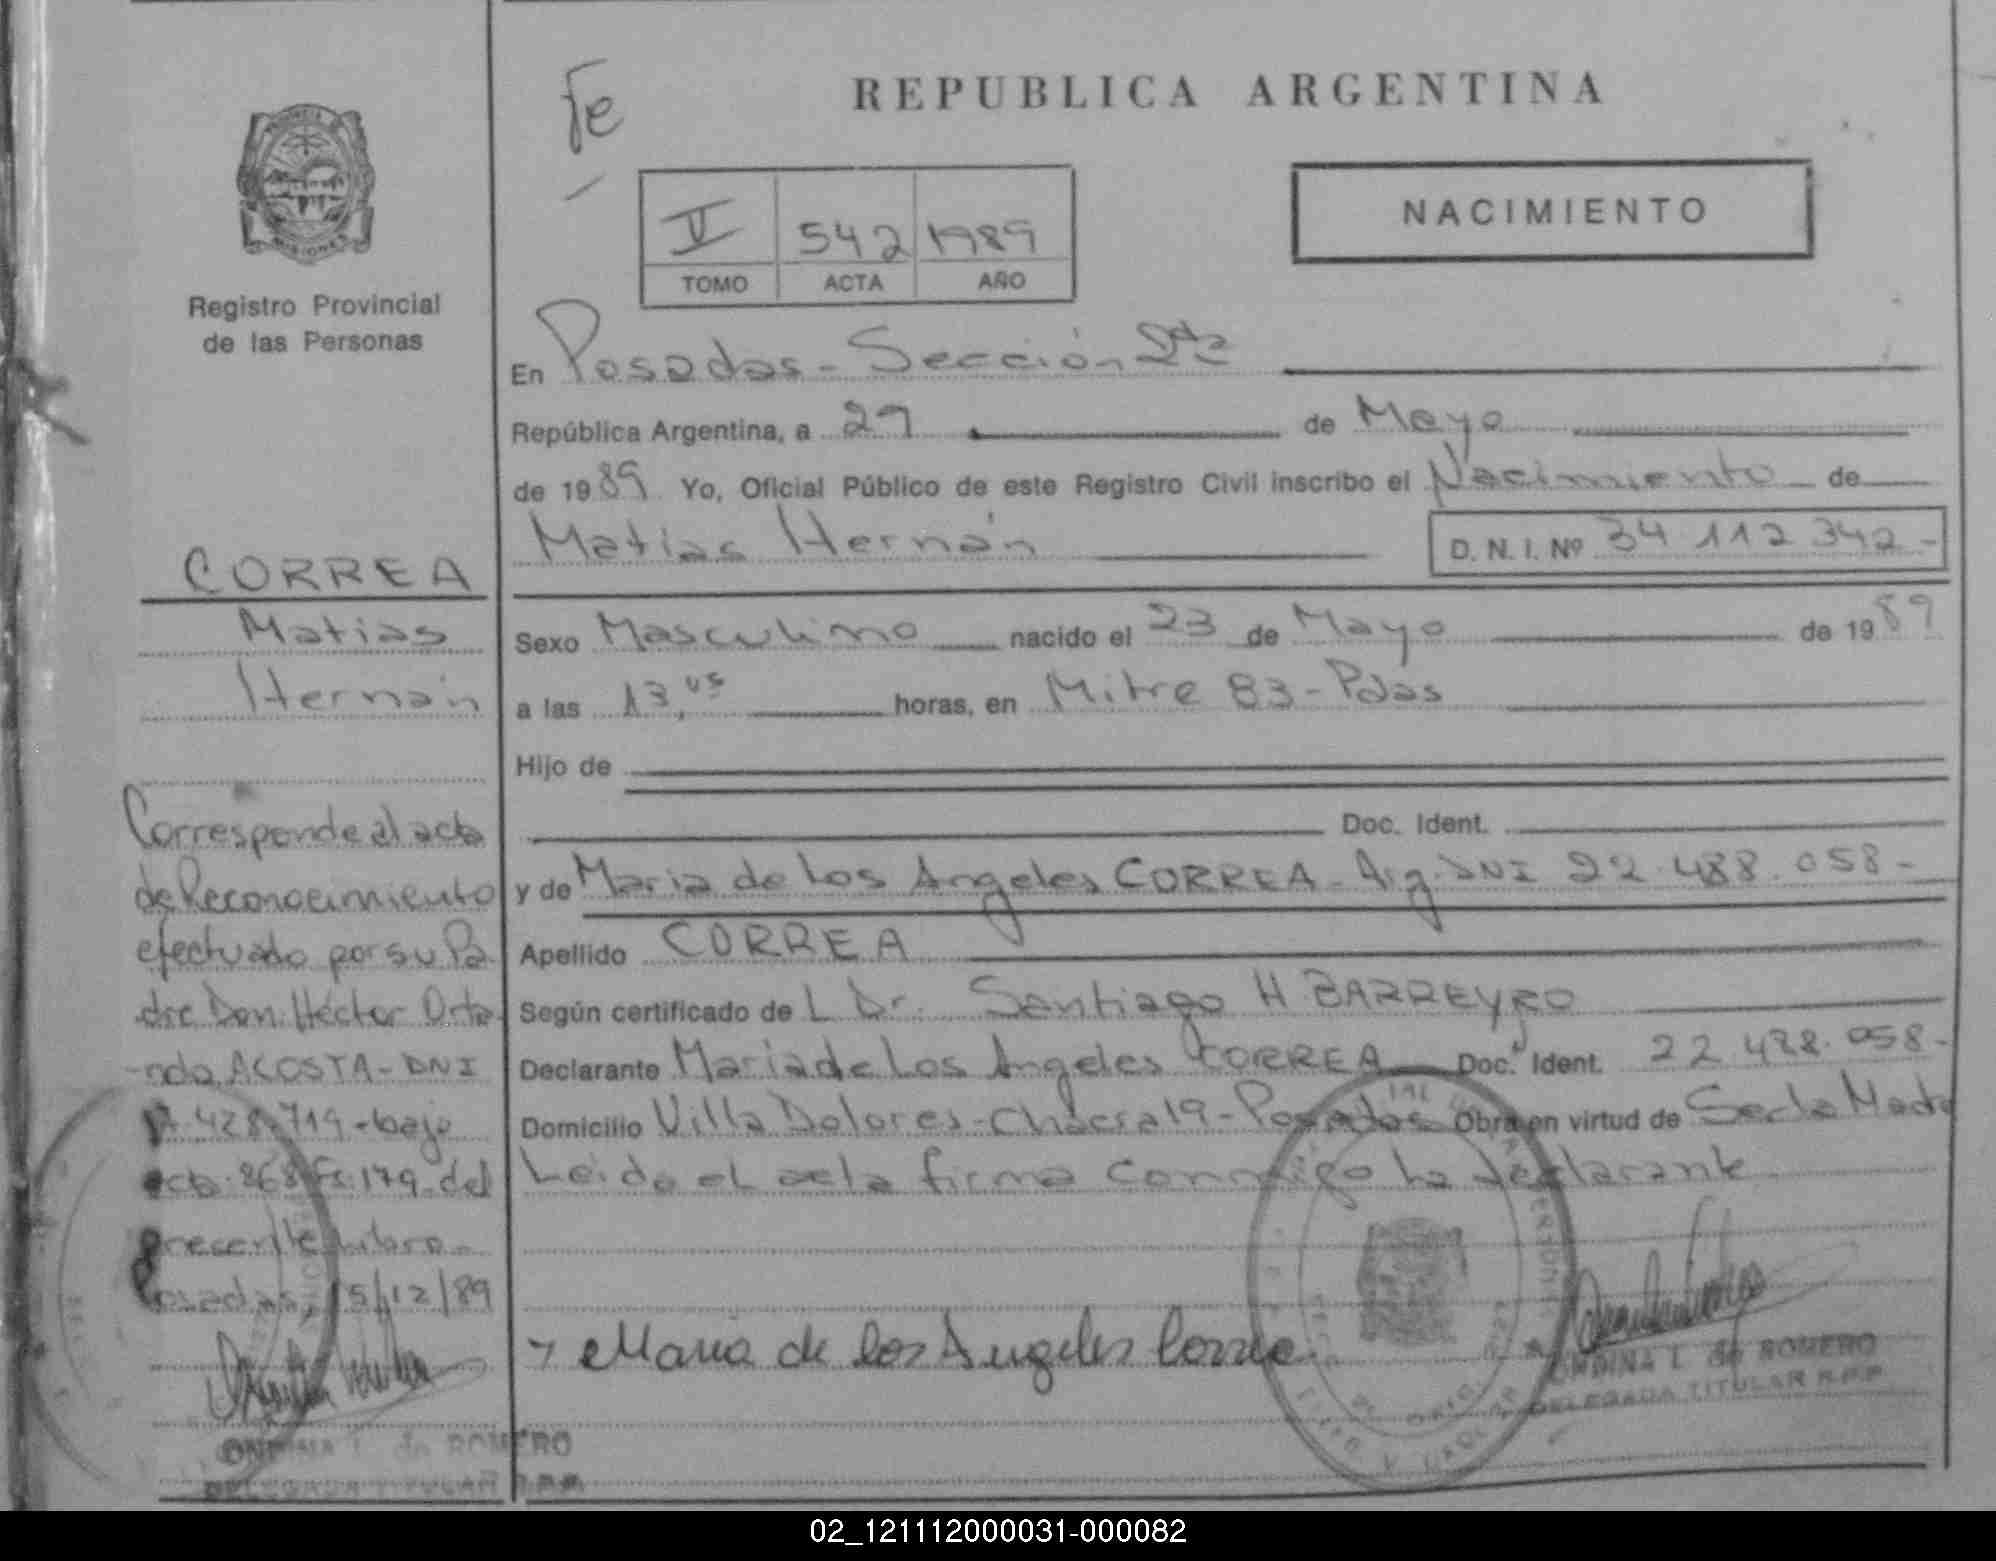 Fe
REPUBLICA ARGENTINA
PROVINCIA DE
MISIONES
Registro Provincial
de las Personas
NACIMIENTO
V 542 1989
TOMO ACTA AÑO
En Posadas - Sección 2da
República Argentina, a 29 de Mayo
de 1989 Yo, Oficial Público de este Registro Civil inscribo el Nacimiento de
Matias Hernán
D. N. I. Nº 34 112 342-
CORREA
Matias
Hernán
Sexo Masculino nacido el 23 de Mayo de 1989
a las 13, horas, en Mitre 83 - Pdas
Hijo de
Doc. Ident.
y de Maria de Los Angeles CORREA - Arg. DNI 22.488.058-
Apellido CORREA
Según certificado de L Dr. Santiago H BARREYRO
Declarante Maria de Los Angeles CORREA Doc. Ident. 22.488.058-
Domicilio Villa Dolores - Chacra 19 - Posadas Obra en virtud de Ser la Madre
Leído el acta firma conmigo la declarante
Corresponde al acta
de Reconocimiento
efectuado por su Pa
dre Don Héctor Orla
ndo ACOSTA - DNI
17.428.719 - bajo
acta 868 Fs 179 del
presente Libro -
Posadas, 15/12/89
Maria de los Angeles Correa
ONDINA I. de ROMERO
DELEGADA TITULAR R.P.P.
ONDINA I. de ROMERO
DELEGADA TITULAR R.P.P.
02_121112000031-000082